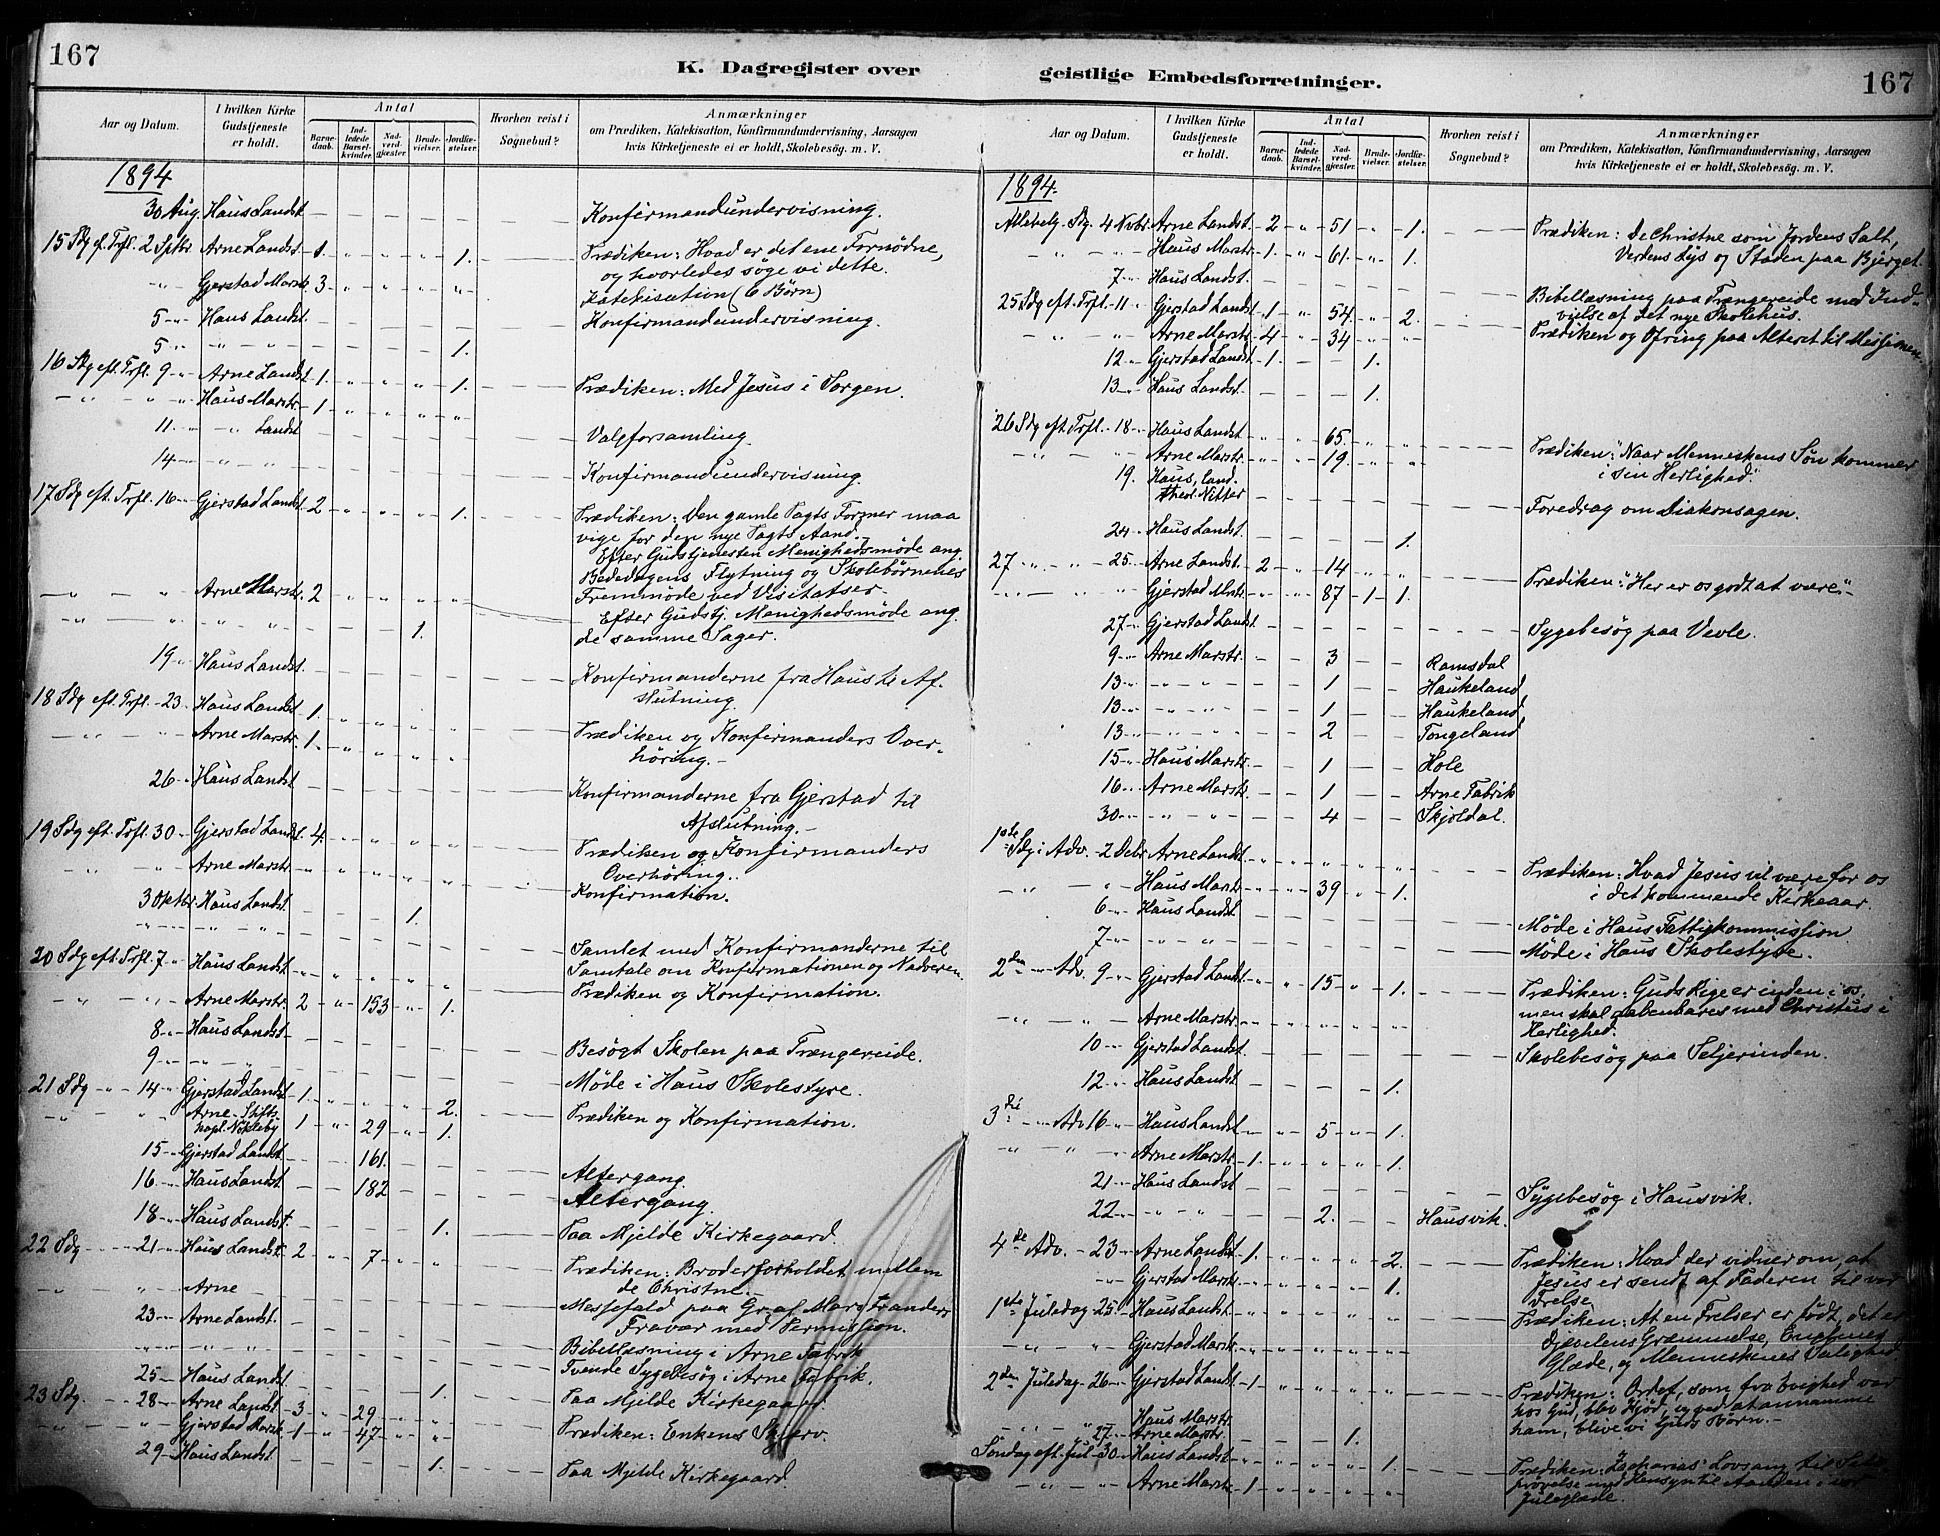 167
K. Dagregister over
Aar og Datum.
I hvilken Kirke Gudstjeneste er holdt.
Antal
Barnedaab.
Indledede Barselkvinder.
Nadverdgjæster.
Brudevielser.
Jordfæstelser.
Hvorhen reist i Sognebud?
Anmærkninger
om Prædiken, Katekisation, Konfirmandundervisning, Aarsagen
hvis Kirketjeneste ei er holdt, Skolebesøg. m. V.
1894
30 Aug. Haus Landst. Konfirmandundervisning.
15 Sdg ef. Trfl. 2 Sptbr. Arne Landst. 1. 1. Prædiken: Hvad er det ene Fornødne,
og hvorledes søge vi dette.
Gjerstad Marstr. 3 Katekisation (6 Børn)
5 Haus Landst. Konfirmandundervisning.
5 1.
16 Sdg eft. Trfl. 9 Arne Landst. 1. 1. Prædiken: Med Jesus i Sorgen.
Haus Marstr. 1
11. Landst Valgforsamling.
14 Konfirmandundervisning.
17 Sdg eft. Trfl. 16 Gjerstad Landst. 2 1. Prædiken: Den gamle Pagts Former maa
vige for den nye Pagts Aand.
Efter Gudstjenesten Menighedsmøde ang.
Bededagens Flytning og Skolebørnenes
Arne Marstr. 2 Fremmøde ved Visitatser.
Efter Gudstj. Menighedsmøde ang.
1. de samme Sager.
19 Haus Landst. Konfirmanderne fra Haus til Af-
slutning.
18 Sdg eft. Trfl. 23 Haus Landst. 1.
Arne Marstr. 1. Prædiken og Konfirmanders Over-
høring.
26 Haus Landst Konfirmanderne fra Gjerstad til
Afslutning.
19 Sdg eft. Trfl. 30 Gjerstad Landst. 4. Prædiken og Konfirmanders
Arne Marstr. Overhøring.
3 Oktbr. Haus Landst. Konfirmation.
1.
Samlet med Konfirmanderne til
20 Sdg eft. Trfl. 7 Haus Landst. Samtale om Konfirmationen og Nadveren
Arne Marstr. 2 153 1. Prædiken og Konfirmation.
8 Haus Landst. Besøgt Skolen paa Trængereide.
9 Møde i Haus Skolestyre.
21 Sdg 14 Gjerstad Landst. 1. 2. Prædiken og Konfirmation.
Arne Stifts
kapl. Nikleby 1 29 1.
15 Gjerstad Landst. 161. Altergang.
16 Haus Landst. 182 Altergang.
18 Haus Landst. 1. Paa Mjelde Kirkegaard.
22 Sdg 21 Haus Landst. 2 7 Prædiken: Broderforholdet mellem
de Christne.
Arne Messefald paa Gr. af Marstranders
Fravær med Permission.
23 Arne Landst. Bibellæsning i Arne Fabrik
Tvende Sygebesøg i Arne Fabrik.
25 Haus Landst. 1. Paa Mjelde Kirkegaard
23 Sdg 28 Arne Landst 3 29
Gjerstad Marstr. 1 47 Prædiken: Enkens Skjerv.
29 Haus Landst. 1. Paa Mjelde Kirkegaard.
geistlige Embedsforretninger.
167
Aar og Datum.
I hvilken Kirke Gudstjeneste er holdt.
Antal
Barnedaab.
Indledede Barselkvinder.
Nadverdgjæster.
Brudevielser.
Jordfæstelser.
Hvorhen reist i Sognebud?
Anmærkninger
om Prædiken, Katekisation, Konfirmandundervisning, Aarsagen
hvis Kirketjeneste ei er holdt, Skolebesøg. m. V.
1894.
Allehelg. Sdg. 4 Nvbr. Arne Landst. 2 51 1. Prædiken: De Christne som Jordens Salt,
Haus Marstr. 1. 61. 1. Verdens Lys og Staden paa Bjerget.
7 Haus Landst. Bibellæsning paa Trængereide med Ind-
vielse af det nye Skolehus.
25 Sdg eft. Trfl. 11 Gjerstad Landst. 1 54 2. Prædiken og Ofring paa Alteret til Missionen
Arne Marstr. 4 34
12 Gjerstad Landst. 1. 1.
13 Haus Landst. 1.
26 Sdg eft. Trfl. 18 Haus Landst. 65. Prædiken: "Naar Menneskens Søn kommer
Arne Marstr. 19. i sin Herlighed."
19. Haus, Cand.
theol. Nitter Foredrag om Diakonsagen.
24 Haus Landst. 1.
27 25. Arne Landst. 2 14 Prædiken: "Her er os godt at være."
Gjerstad Mstr. 87 1 1.
27 Gjerstad Landst. Sygebesøg paa Vevle.
9 Arne Marstr. 3 Ramsdal
13 1 Haukeland
13 1 Haukeland
13 2 Tongeland
15 Haus Marstr. 1 Hole
16 Arne Marstr. 1 Arne Fabrik
30 4 Skjoldal.
1ste Sdg i Adv. 2 Debr. Arne Landst. Prædiken: Hvad Jesus vil være for os
Haus Marstr. 39 1. i det kommende Kirkeaar.
6 Haus Landst. Møde i Haus Fattigkommission
7 Møde i Haus Skolestyre.
2den Adv. 9 Gjerstad Landst. 15 1. Prædiken: Guds Rige er inden i os,
men skal aabenbares med Christus i
Arne Marstr. Herlighed.
10 Gjerstad Landst. Skolebesøg paa Seljerinden.
12 Haus Landst. 1.
3die Adv 16 Haus Landst. 5 1.
Arne Marstr. 1. 1.
21 Haus Landst Sygebesøg i Hausvik.
22 2. Hausvik.
4de Adv. 23 Arne Landst. 1. 2. Prædiken: Hvad der vidner om, at
Gjerstad Marstr. 1. Jesus er sendt af Faderen til vor
Frelse.
1ste Juledag 25 Haus Landst. Prædiken: At en Frelser er født, det er
Gjerstad Marstr. Djævelens Græmmelse, Englenes
Glæde, og Menneskenes Salighed.
2den Juledag 26 Gjerstad Landst. 1 Prædiken: Ordet, som fra Evighed var
Haus Marstr. hos Gud, blev Kjød, og ved at annamme
27 Arne Marstr. 1. ham, blive vi Guds Børn.
Søndag eft. Jul 30 Haus Landst. 1. Prædiken: Zacharias' Lovsang til Selv-
Arne Marstr. 1 prøvelse med Hensyn til Aanden i vor
Juleglæde.